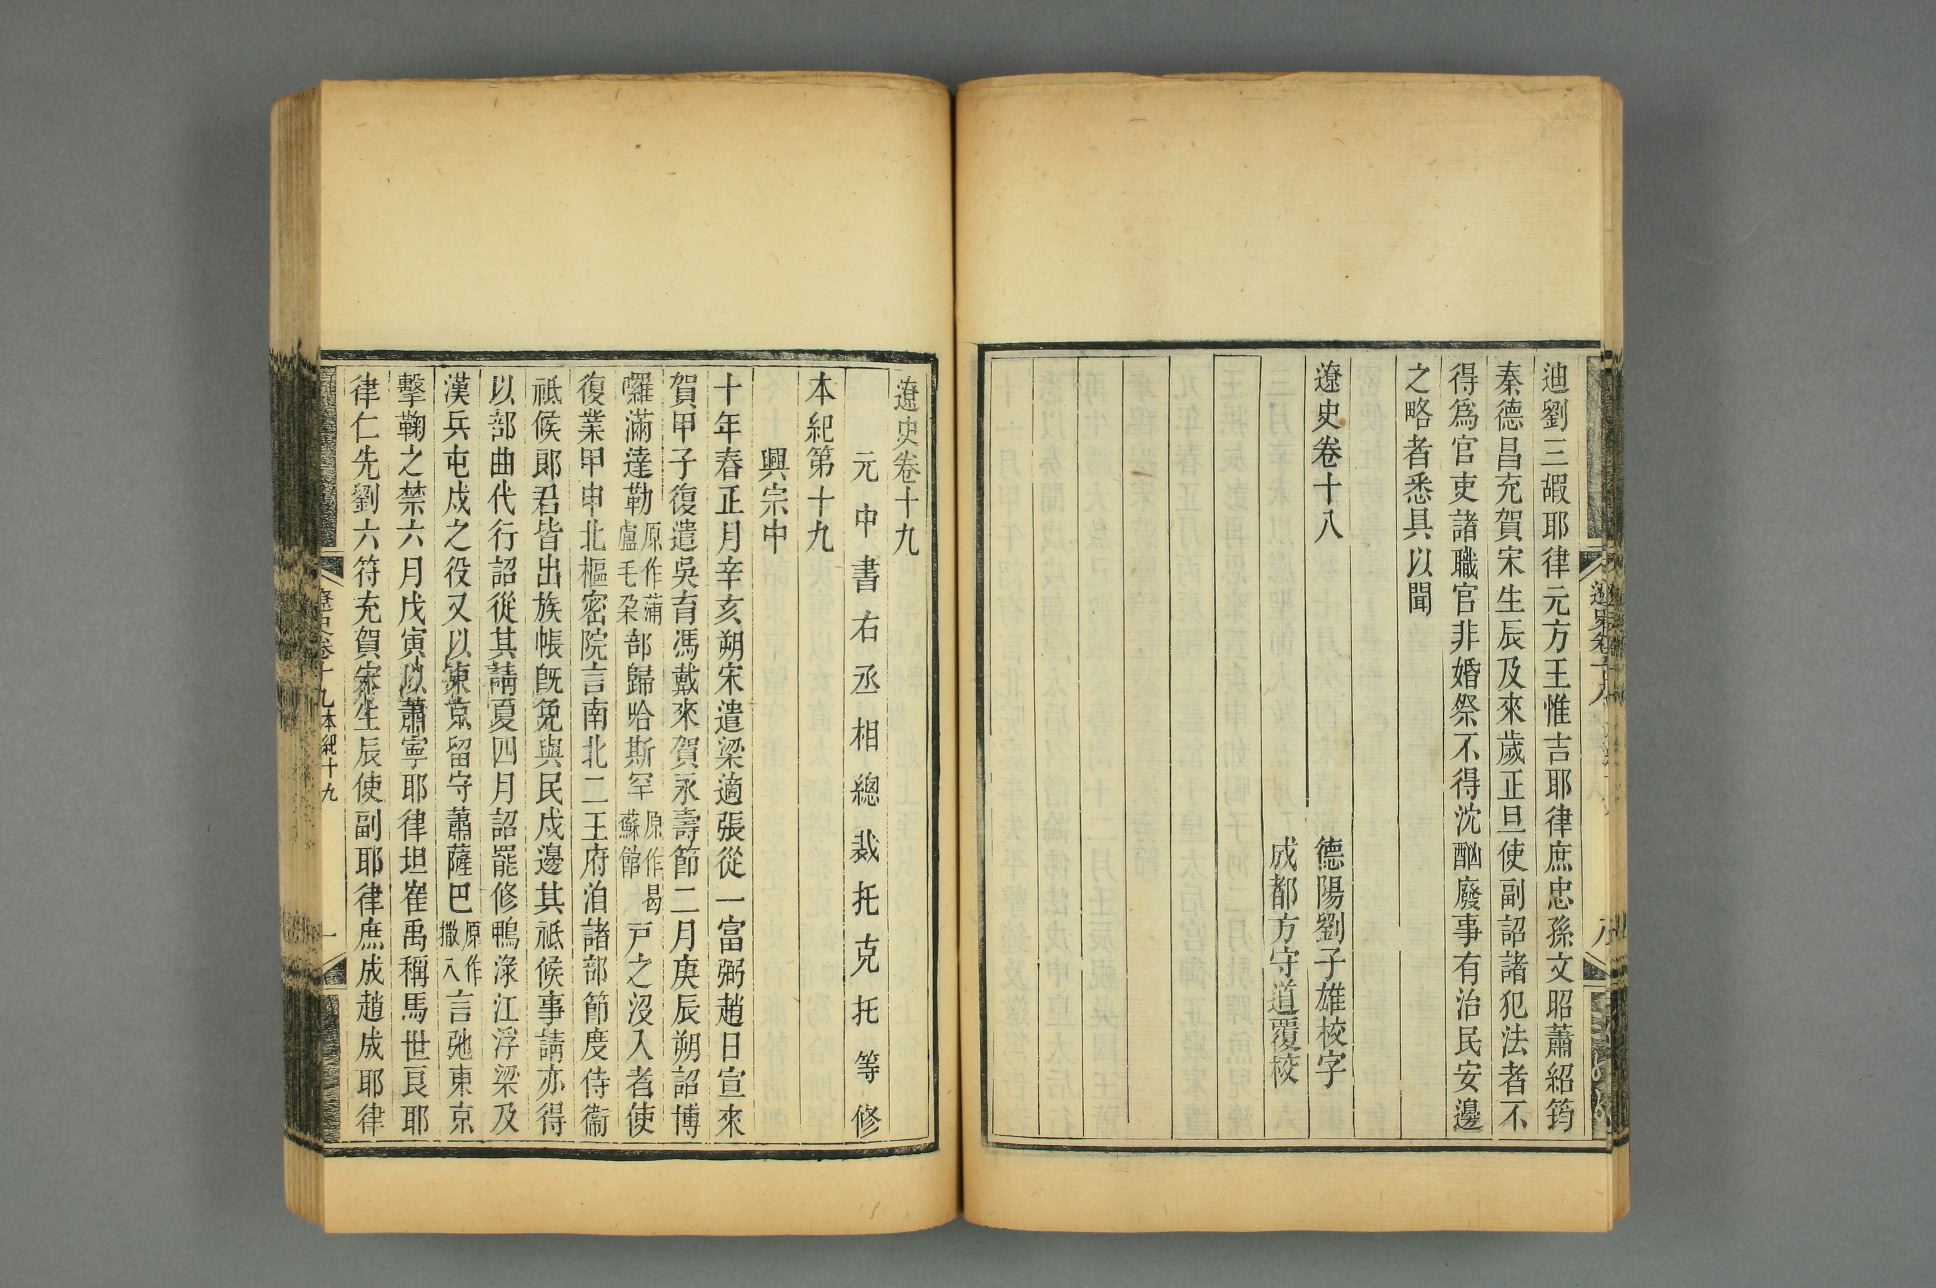 迪劉三嘏耶律元方王惟吉耶律庶忠孫文昭蕭紹筠
秦德昌充賀宋生辰及來歲正旦使副詔諸犯法者不
得爲官吏諸職官非婚祭不得沈酗廢事有治民安邊
之略者悉具以聞
遼史卷十八
德陽劉子雄校字
成都方守道覆校
遼史卷十八
八
遼史卷十九
元中書右丞相總裁托克托等修
本紀第十九
興宗中
十年春正月辛亥朔宋遣梁適張從一富弼趙日宣來
賀甲子復遣吳育馮戴來賀永壽節二月庚辰朔詔博
囉滿達勒原作蒲盧毛朶部歸哈斯罕原作曷蘇館戸之沒入者使
復業甲申北樞密院言南北二王府洎諸部節度侍衞
祗候郞君皆出族帳旣免與民戍邊其祗候事請亦得
以部曲代行詔從其請夏四月詔罷修鴨淥江浮梁及
漢兵屯戍之役又以東京留守蕭薩巴原作撒八言弛東京
擊鞠之禁六月戊寅以蕭寧耶律坦崔禹稱馬世良耶
律仁先劉六符充賀宋生辰使副耶律庶成趙成耶律
遼史卷十九 本紀十九
一